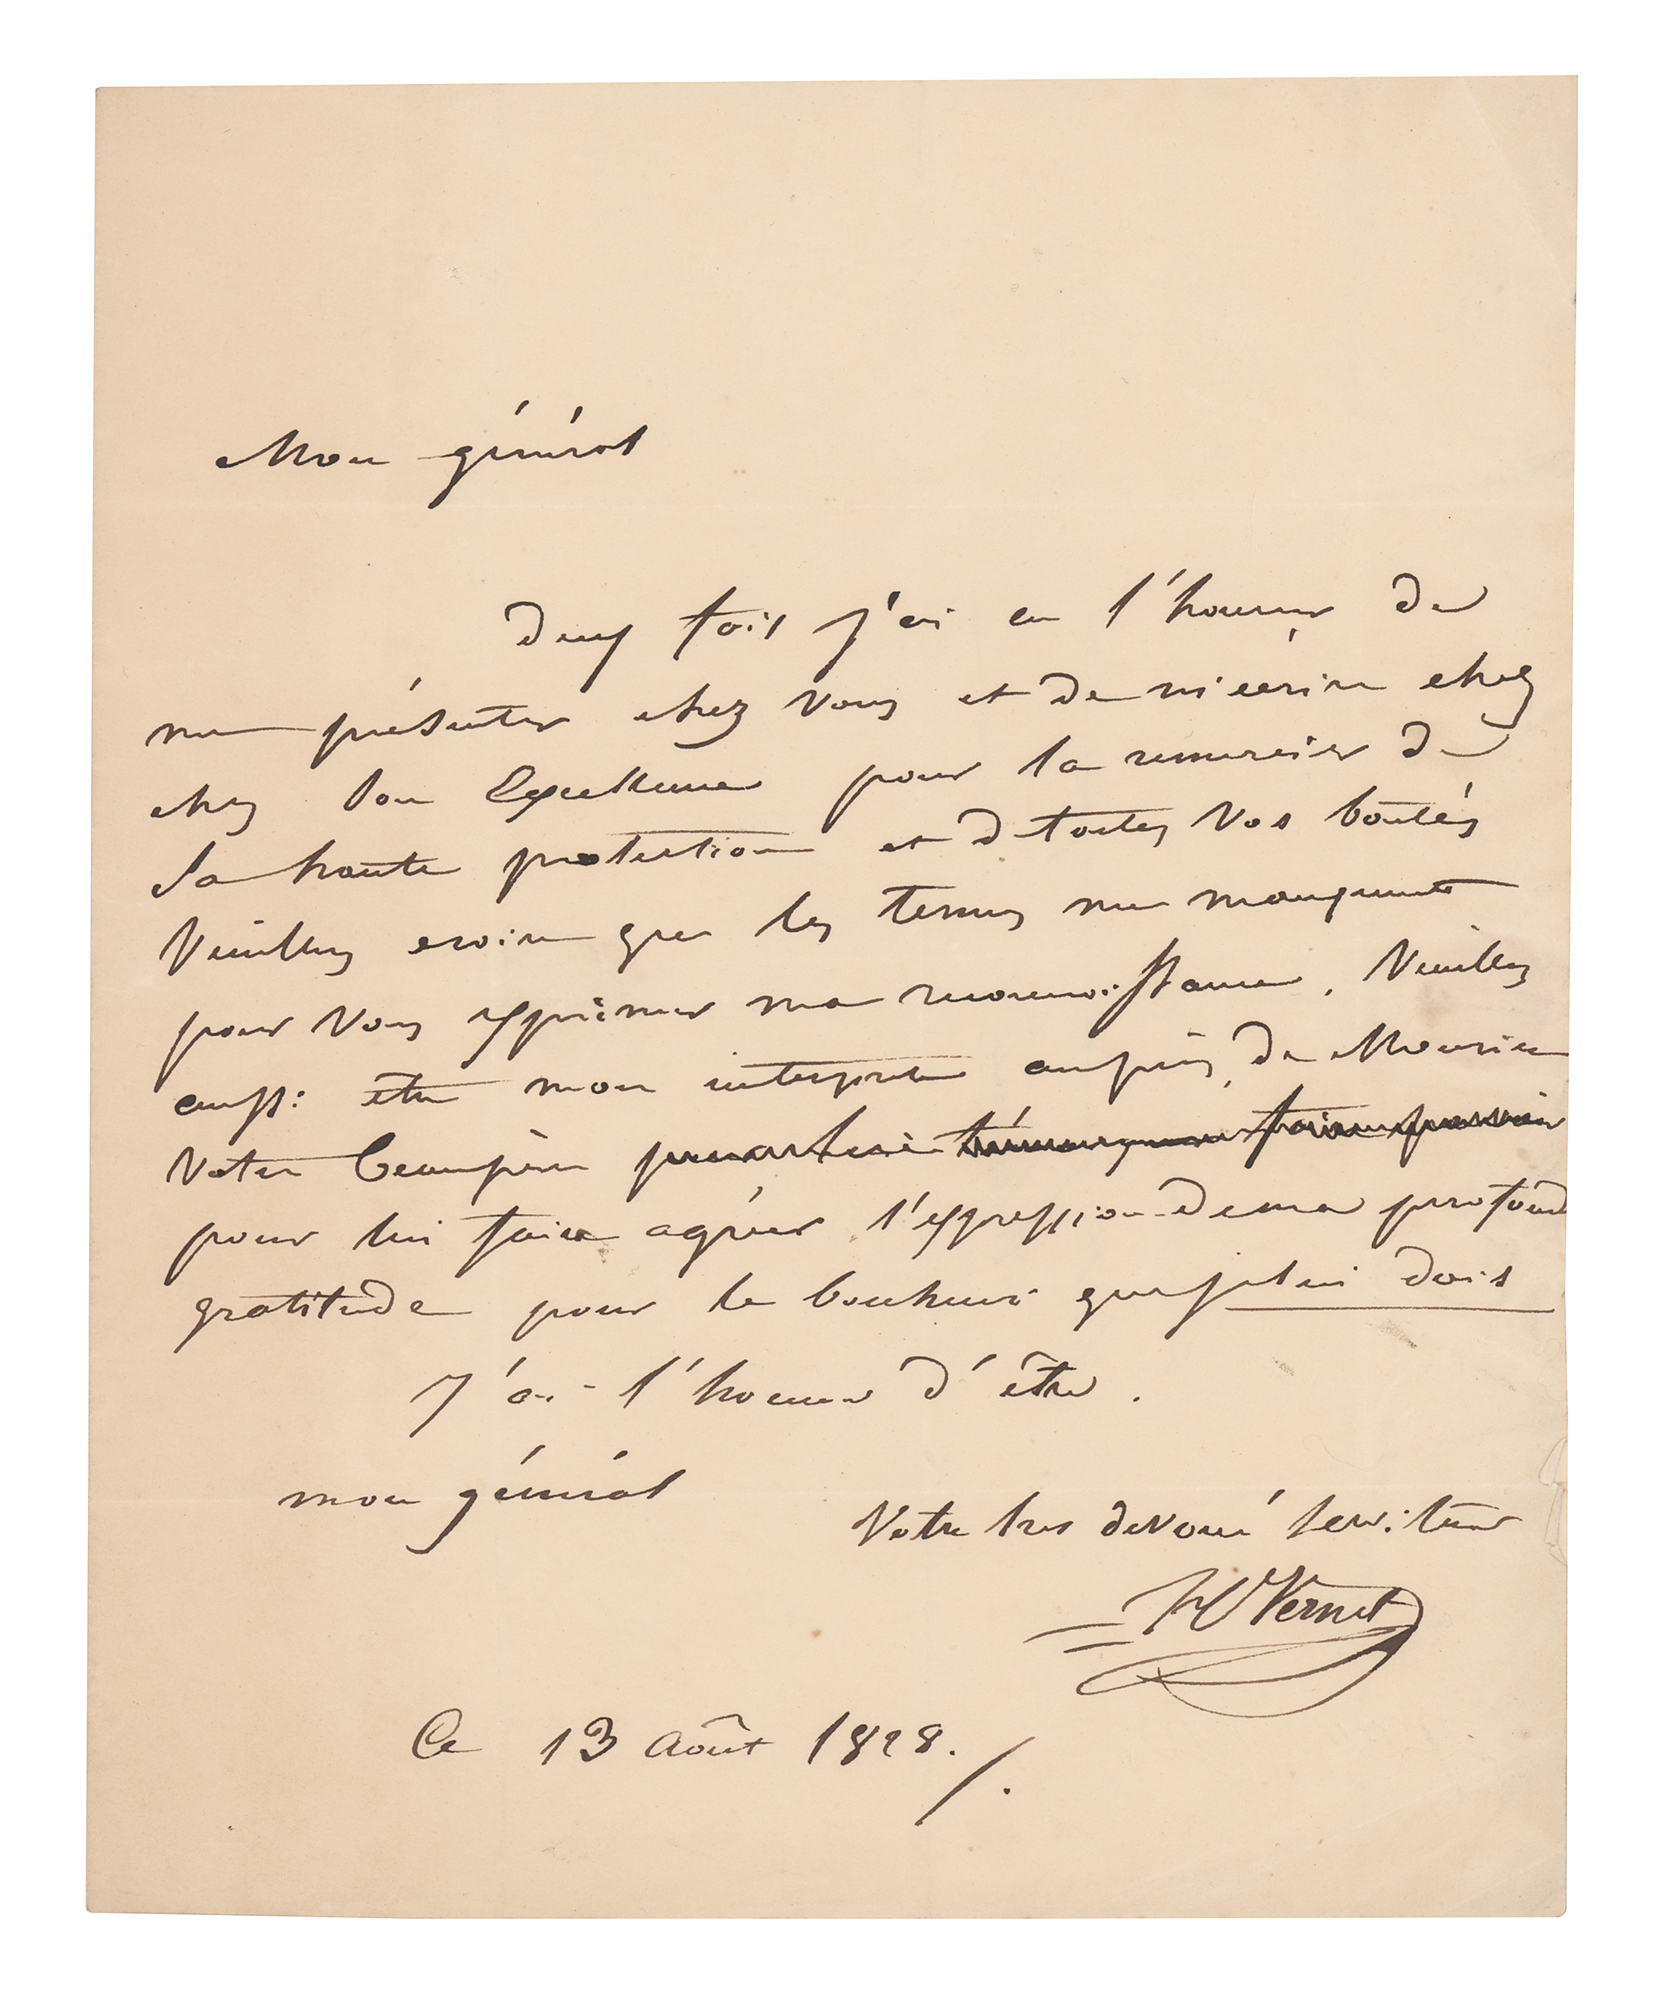 Mon général
deux fois j'ai eu l'honneur de
me présenter chez vous et de m'écrire chez
chez Son Excellence pour la remercier de
Sa haute protection et d toutes vos bontés
Veuillez croire que les termes me manquent
pour vous exprimer ma reconnoissance. Veuillez
aussi être mon interprete auprès de Monsieur
Votre beaupère pour lui témoigner faire
pour lui faire agréer l'expression de ma profond
gratitude pour le bonheur que je lui dois
J'ai l'honneur d'être.
mon général
Votre tres devoué serviteur
H Vernet
Ce 13 Août 1828./.